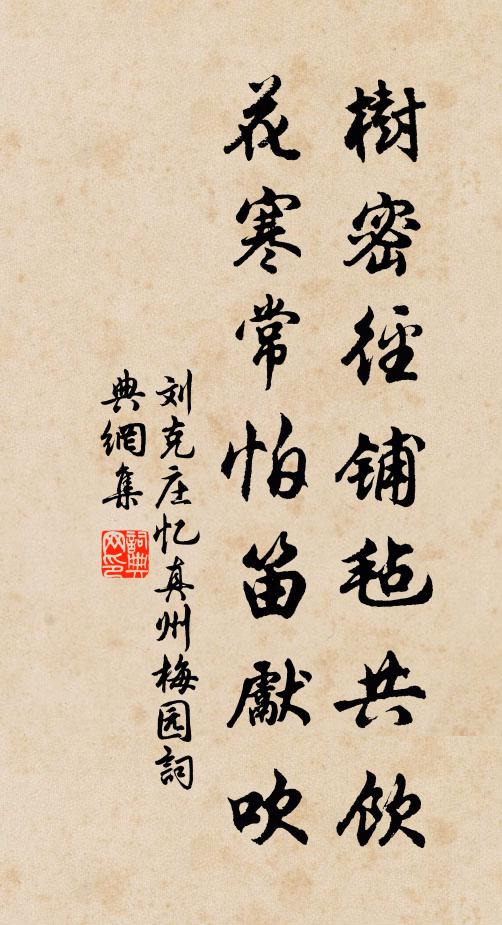 樹密徑铺毡共飲
花寒常怕笛獻吹
刘克庄忆真州梅园詞
典網集
詞典网印